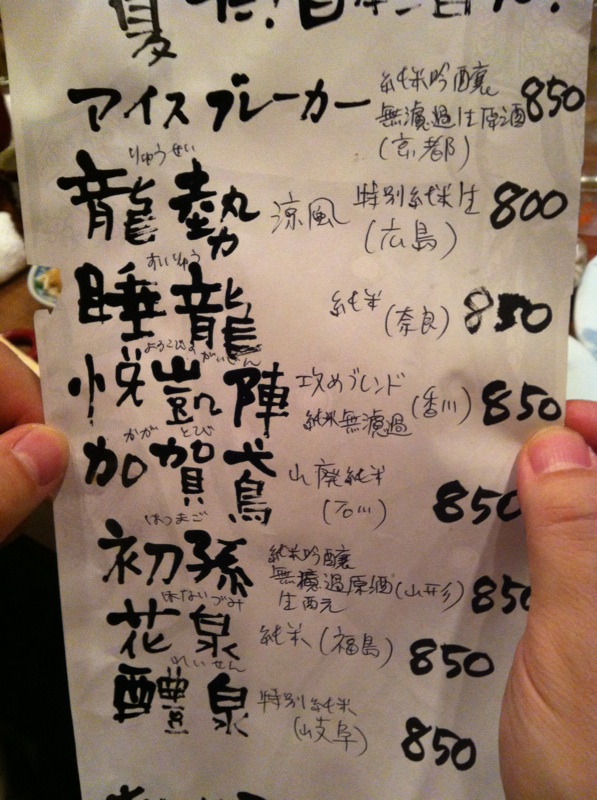 夏だ!日本酒だ!
アイスブレーカー 純米吟醸 無濾過生原酒 (京都) 850
りゅうせい
龍勢 涼風 特別純米生 (広島) 800
すいりゅう
睡龍 純米 (奈良) 850
よろこぶ がいじん
悦凱陣 攻めブレンド 純米無濾過 (香川) 850
かが とび
加賀鳶 山廃純米 (石川) 850
はつまご
初孫 純米吟醸 無濾過原酒 生酛 (山形) 850
はないづみ
花泉 純米 (福島) 850
れいせん
醴泉 特別純米 (岐阜) 850